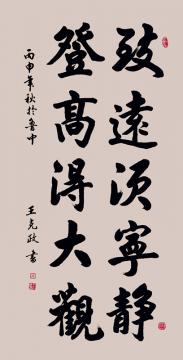 致遠須寧靜
登高得大觀
丙申年秋於魯中
王克政書